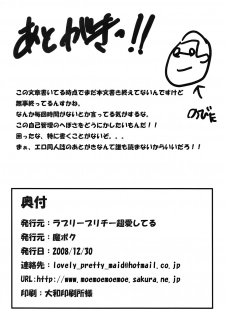 あとがきっ!!
のびた
この文章書いてる時点でまだ本文書き終えてないんですけど
無事終ってるんすかね。
なんか毎回時間がないとか言ってる気がするな。
この自己管理のへぼさをどうにかしたいもんだ!!
困ったな、特に書くことがないぞ。。。
まぁ、エロ同人誌のあとがきなんて誰も読まないからいいだろ!!
奥付
発行元：ラブリープリチー超愛してる
発行元：魔ボク
発行日：2008/12/30
連絡先：lovely_pretty_maid@hotmail.co.jp
URL:http://www.moemoemoemoe.sakura.ne.jp
印刷：大和印刷所様